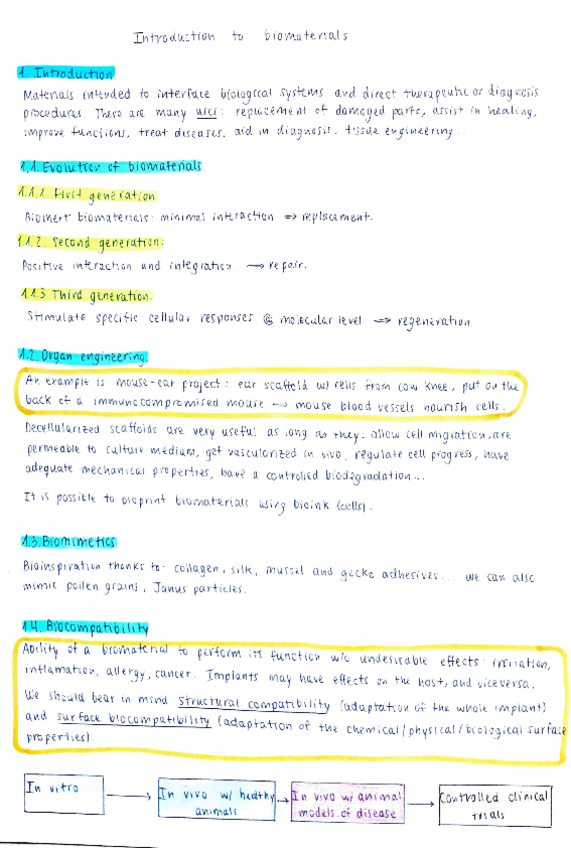 Introduction to biomaterials
1. Introduction
Materials intended to interface biological systems and direct therapeutic or diagnosis
procedures. There are many uses: replacement of damaged parts, assist in healing,
improve functions, treat diseases, aid in diagnosis, tissue engineering...
1.1. Evolution of biomaterials
1.1.1 First generation
Bioinert biomaterials: minimal interaction ⇒ replacement.
1.1.2. Second generation:
Positive interaction and integration → repair.
1.1.3 Third generation:
Stimulate specific cellular responses @ molecular level ⇒ regeneration
1.2. Organ engineering.
An example is mouse-ear project: ear scaffold w/ cells from cow knee, put on the
back of a immunocompromised mouse → mouse blood vessels nourish cells.
Decellularized scaffolds are very useful as long as they: allow cell migration, are
permeable to culture medium, get vascularized in vivo, regulate cell progress, have
adequate mechanical properties, have a controlled biodegradation...
It is possible to bioprint biomaterials using bioink (cells).
1.3. Biomimetics
Bioinspiration thanks to: collagen, silk, mussel and gecko adhesives... We can also
mimic pollen grains, Janus particles.
1.4. Biocompatibility
Ability of a biomaterial to perform its function w/o undesirable effects: irritation,
inflamation, allergy, cancer. Implants may have effects on the host, and viceversa.
We should bear in mind structural compatibility (adaptation of the whole implant)
and surface biocompatibility (adaptation of the chemical/physical/biological surface
properties)
In vitro → In vivo w/ healthy animals → In vivo w/ animal models of disease → Controlled clinical trials